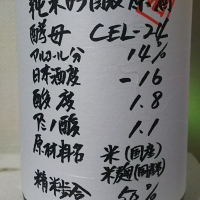 純米吟醸原酒
酵母 CEL-24
アルコール分 14%
日本酒度 -16
酸度 1.8
アミノ酸 1.1
原材料名 米(国産)
米麹(国産米)
精米歩合 50%